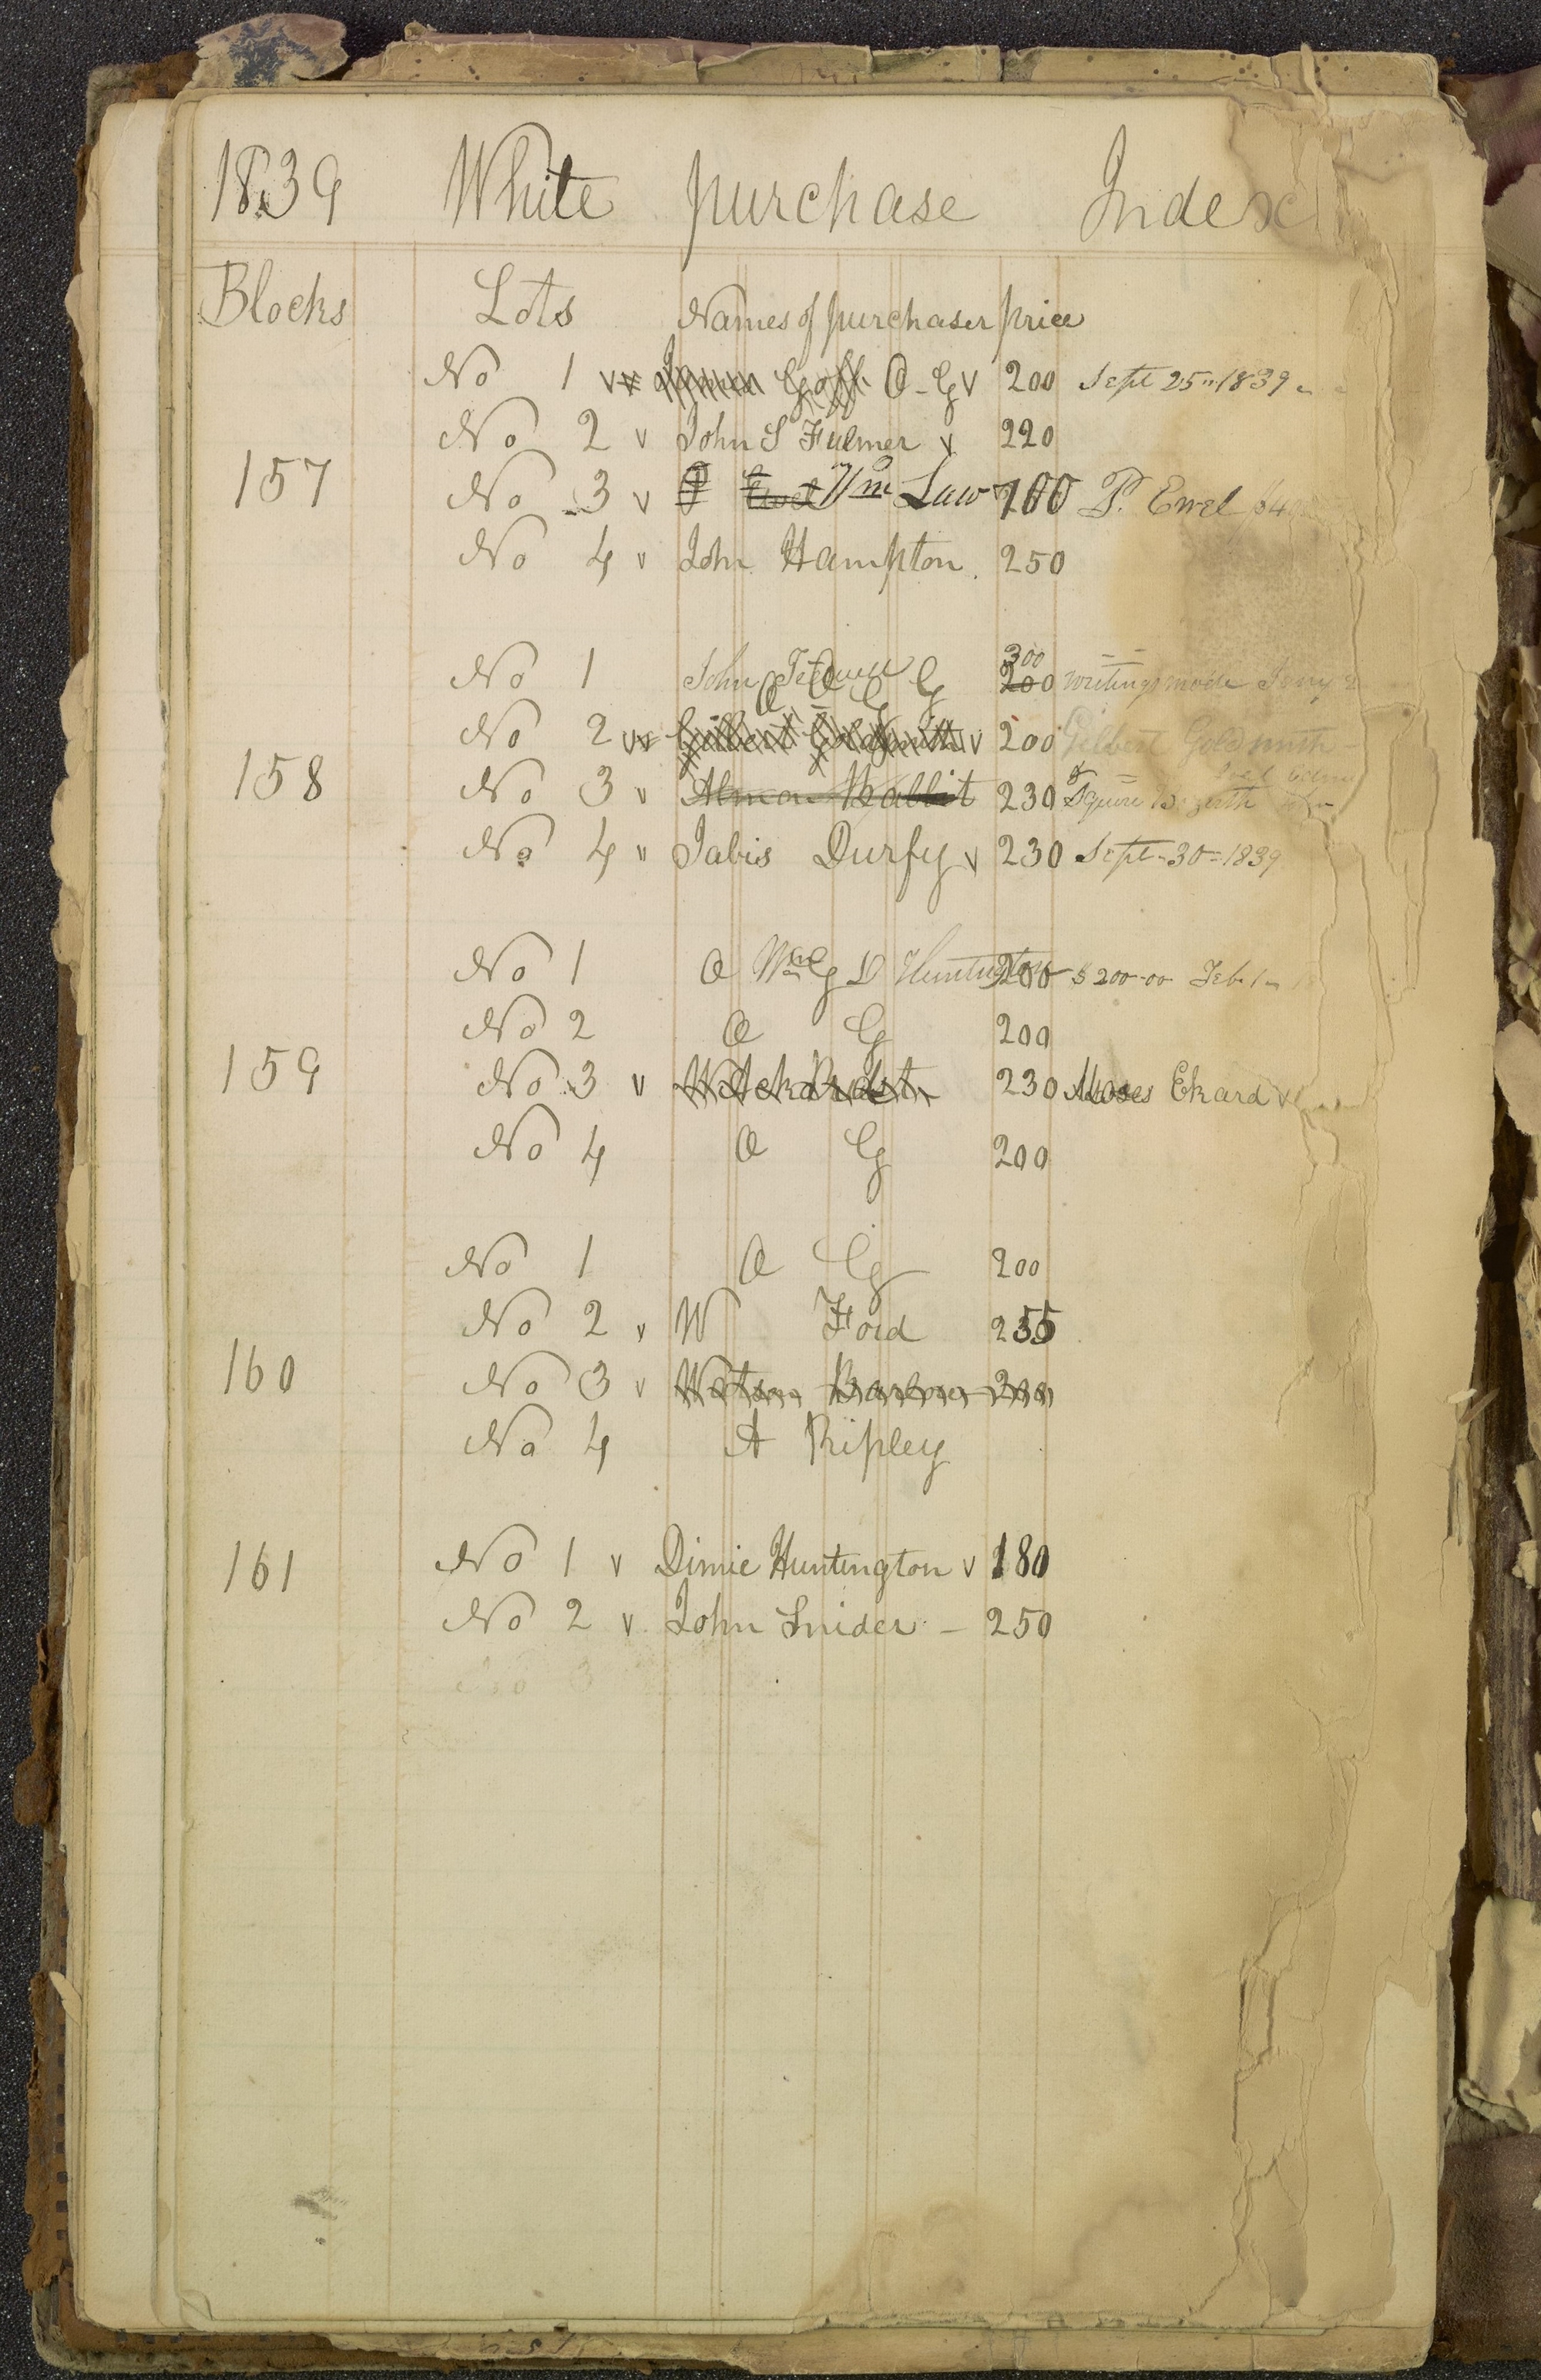 1839 White purchase Index
Blocks Lots Names of purchaser price
No 1 v v James Goff O - G v 200 Sept 25" 1839
No 2 v John S Fulmer v 220
157 No 3 v P Ewel Wm Law 700 P. Ewel
No 4 v John Hampton. 250
300
No 1 John O G 200 writings made
O G
No 2 v v Gilbert Goldsmith v 200 Gilbert Goldsmith
158 No 3 v Almon Babbit 230 Squire
No 4 " Jabis Durfy v 230 Sept - 30 = 1839
No 1 O Wm G D Huntington 200 $ 200-00 Feb. 1
No 2 O G 200
159 No 3 v 230 Moses Ekard v
No 4 O G 200
No 1 O G 200
No 2 v W Ford 255
160 No 3 v Watson Barlow 200
No 4 A Ripley
161 No 1 v Dimic Huntington v 180
No 2 v. John Snider - 250
No 3